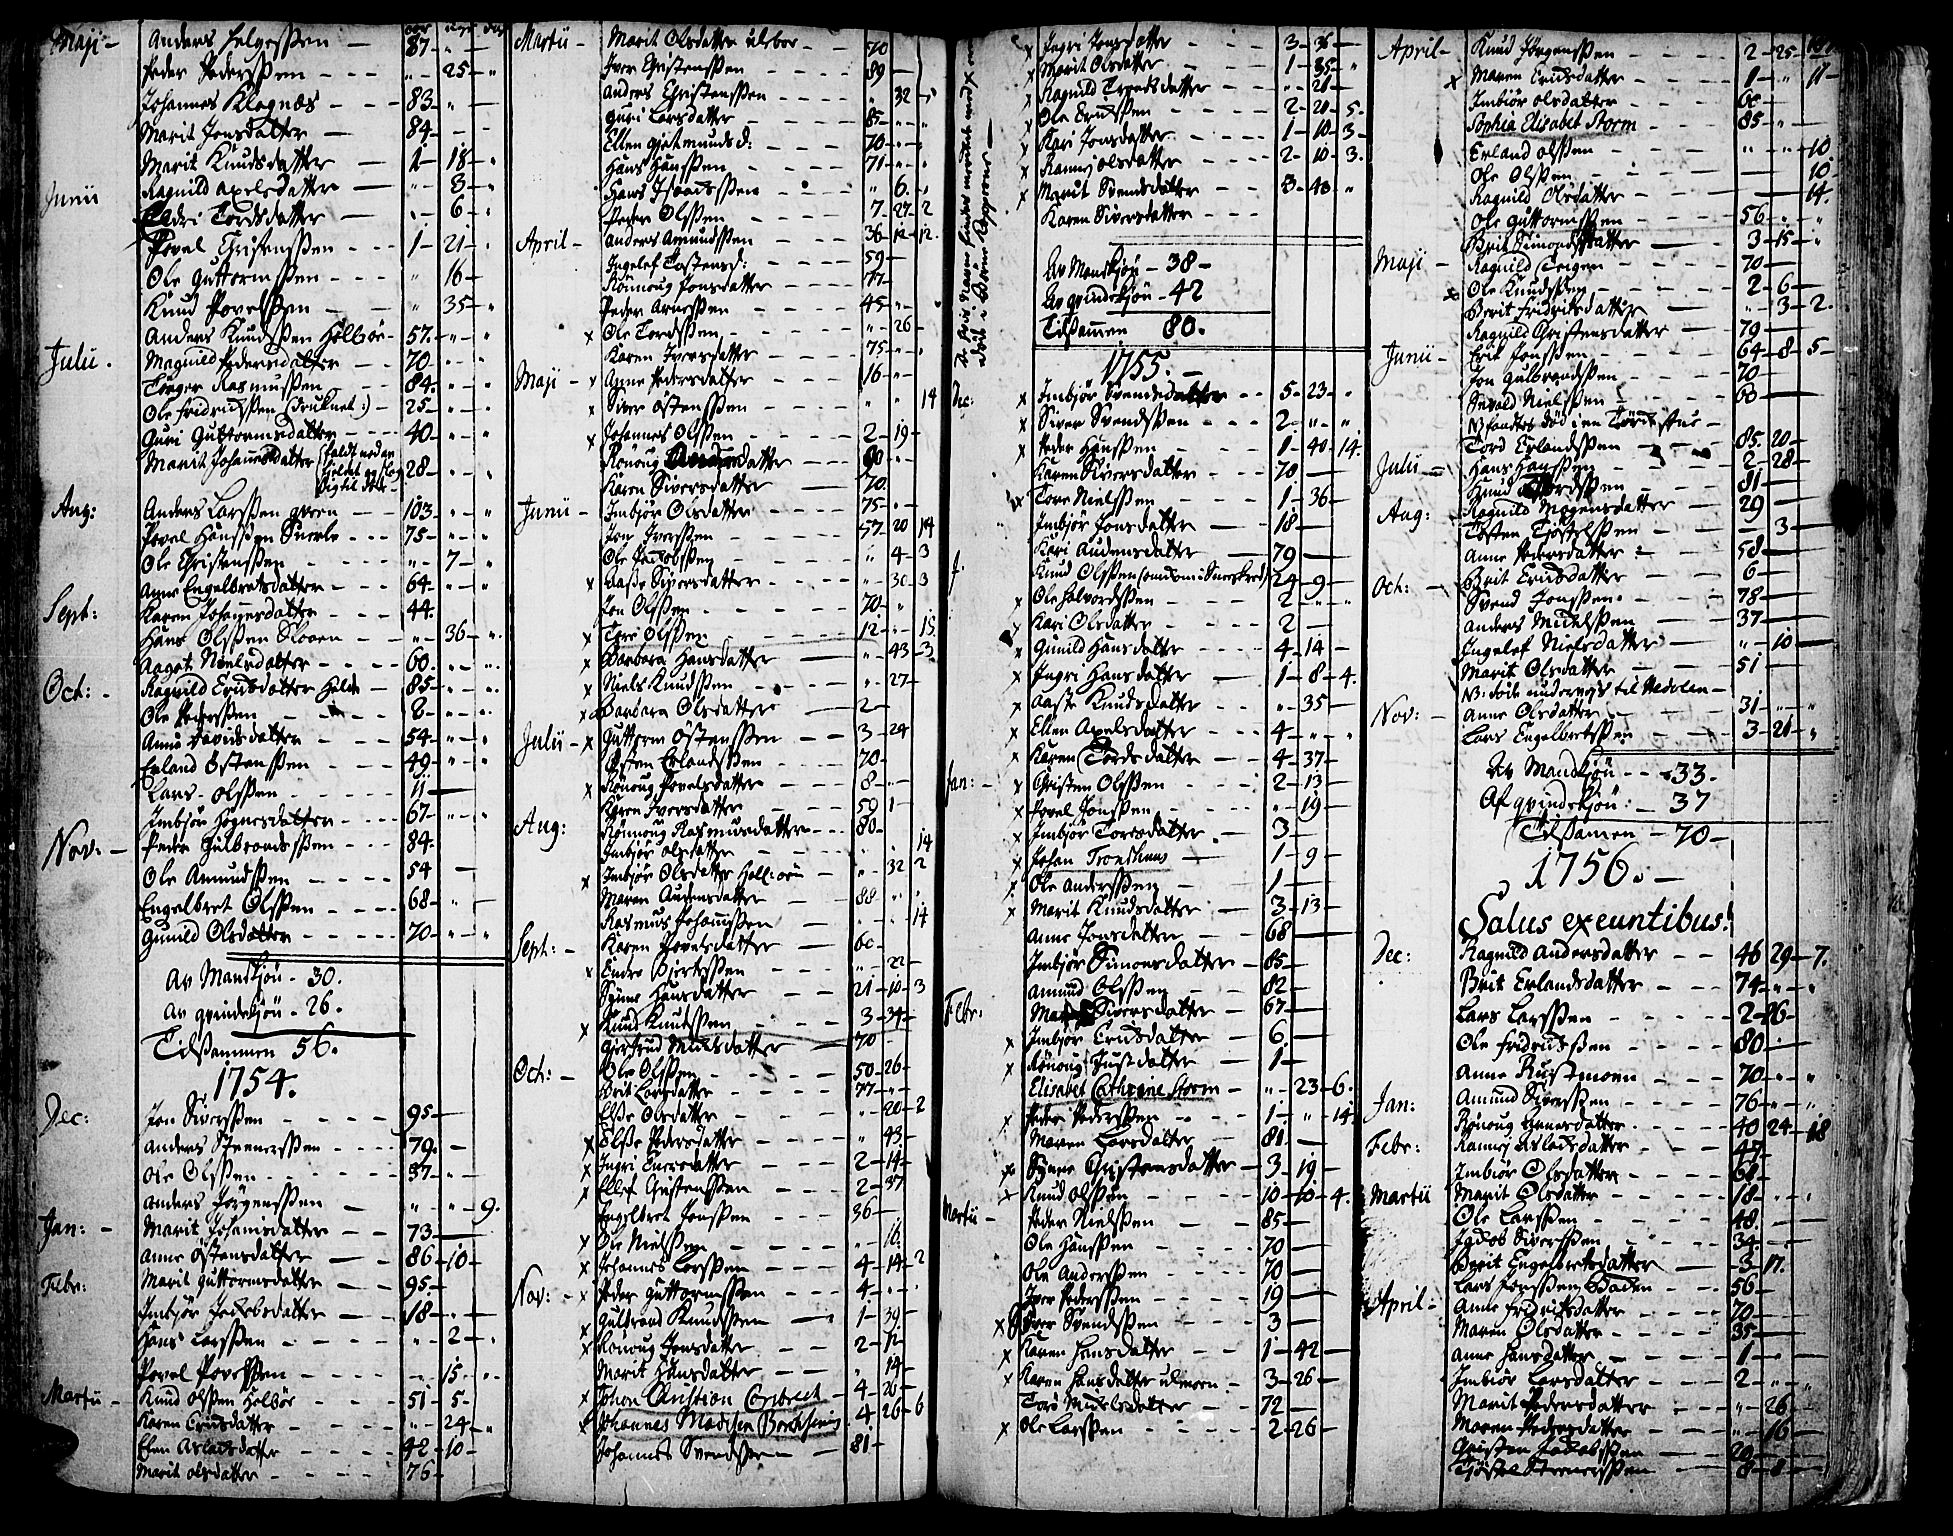 Maji - Anders Helgesßen — 87 - " -
Peder Pedersßen - - - " - 25 - "
Johannes Klognæs - - - 83 - " -
Marit Jonsdatter — 84 - - -
Marit Knudsdatter — 1 - 18 - "
Junii Ragnild Axelsdatter — " - 3 - "
Tordsdatter — " - 6 - "
Povel Christensßen - - - 1 - 21 - "
Ole Guttormsßen - - - " 16 -
Knud Povelsßen - - - " 35 - "
Anders Knudsßen Holbør - 57 - " - "
Julii. Magnild Pedersdatter - - 70 - " "
Torger Rasmusßen - - 84. - " - "
Ole Fridrichsßen (druknet:) - 25 - " - "
Guri Guttormsdatter - - - 40 - " - "
Marit Johannesdatter 28 - " - "
Aug: Anders Larsßen Qvern - - 103 - " - "
Povel Hansßen Snerle - - - 75 - " - "
Ole Christensßen - - - - " - 7 - "
Anne Engelbretsdatter - - 64 - " - "
Sept: Karen Johannesdatter - - 44.
Hans Olsßen Sloven - - " - 36 - "
Aagot Nielsdatter - - - - 60. - " - "
Oct: - Ragnild Erichsdatter Holde - 85 - " - "
Ole Pedersßen - - - - 8 - " - "
Anne Davidsdatter - - - - 54 - " - "
Erland Østensßen - - - 49 - " - "
Lars Olsßen - - - - 11 —
Imbjør Hognesdatter - - - 67 - " - "
Nov: - Peder Gulbrandsßen - - - 84.
Ole Amundsßen - - - - 54 - —
Engelbret Olsßen - - - - 68 - " -
Gunild Olsdatter - - - - 70 - " - "
Av Mandkjøn - 30.
Av qvindekjøn - 26.
Tilsammen 56.
1754.
Dec: Jon Siversßen - - - - 95 —
Anders Steenersßen - - - - 79. —
Ole Olsßen - - - - - 37 - " -
Anders Jørgensßen — " - " - 9.
Jan: - Marit Johannisdatter - - 73 —
Anne Østensdatter — 86 - 10 -
Febr: Marit Guttormsdatter — 95 -
Imbjør Jacobsdatter — 18 - " -
Hans Larsßen - - - - " - 2 - "
Povel Povelsßen - - - - " - 15 - "
Martii - Knud Olsßen Holbør - 51 - 5 -
Karen Erichsdatter - - - " - 24 - "
Elen Aslachsdatter - - - 42 - 10 -
Marit Olsdatter - - - - 76 -
Martii - Marit Olsdatter - 70
Iver Christensßen - - - - 89 —
Anders Christensßen - - - - " 32 -
Guri Larsdatter - - - - - 85 - " - "
Ellen Gjetmundsd: - - - - 70 - " - "
Hans Hansßen - - - - 71 - " - "
" 6. - "
Peder Olsßen - - - - 7 - 27 - 2
April - Anders Amundsßen - - - - 36 - 12 - 12.
Ingelef Tostensd: - - - - 59 —
Rønnoug Jonsdatter - - - - 77 -
Peder Arnesßen - - - - 45 - "
x Ole Tordsßen - - - - " - 26 -
Karen Iversdatter - - - 75 - "
Maji - x Anne Pedersdatter - - - 16 - "
x Siver Østensßen - - - - " " 14
x Johannes Olsßen - - - - 2 - 19 -
Rønnoug datter - - - 90 - "
Karen Siversdatter — 70.
Junii - Imbjør Olsdatter - - - - 75 - " -
Jon Iversßen - - - - 57 20 14
Ole Jacobsßen - - - - " 4 - 3
x Aaste Siversdatter - - - - " - 30 - 3
Jon Olsßen - - - - - 70 - "
x Tore Olsßen - - - - 12 - " - 15
x Barbara Hansdatter — " - 43 - 3
x Niels Knudsßen - - - " - 27 -
x Barbara Olsdatter — 2 —
Julii - x Guttorm Østensßen - - - 3 - 24
Østen Erlandsßen — 70 -
x Rønoug Povelsdatter - - - 8 - " -
Karen Iversdatter - - - 59 1 -
Aug: Rønnoug Rasmusdatter - - - 80 -
Imbjør Olsdatter - - - - " . 14
x Imbjør Olsdatter - - " - 32 - 2
Maren Audensdatter - - 88 " -
Rasmus Johannsßen - - " - " 14
Sept: - Karen Povelsdatter — 60 -
x Endre Bjertsßen - - - " - 22 -
Synne Hansdatter — 21 - 10 - 3
x Knud Knudsßen - - - 3 - 34 -
Gjertrud Michelsdatter — 70 -
Oct: - Ole Olsßen - - - - 50 - 26 -
Brit Larsdatter - - - 77 - "
Else Olsdatter - - - " - 20 - 2
x Else Pedersdatter - - - " 43 -
x Ingri Enersdatter - - - 2 - 14 -
x Ellef Christensßen - - - 2 - 37
Engelbret Jonsßen - - - 36 —
x Ole Nielsßen - - - " - 16.
x Johannes Larsßen - - - 4 - 14 - 2
Nov: - x Peder Guttormsßen - - - 4 - " -
x Gulbrand Knudsßen — 1 - 39 -
x Rønoug Jonsdatter - - - 2 - 12 -
Marit Hansdatter - - - " 14 -
x Johan Christian - 4 - 20 -
x Johannes Madtzen 4 - 26 - 6
Johannes Svendsßen — 81 -
De hvis Navne findes merkede med x ere døde i Børne Kopperne —
x Ingri Jonsdatter - - - 3 - 36 —
x Marit Olsdatter - - - - 1 - 35 - "
x Ragnild Trondsdatter - - " - 21 —
x Ole Erichsßen - - - - 2 - 20 - 5.
x Kari Jonsdatter - - - - 1 - 10 - 3 -
x Rannej Olsdatter - - - - 2 - 10 - 3.
x Marit Svendsdatter - - - 3 - 43 - "
Karen Siversdatter - - -
Av Mandkjøn - 38 -
Av qvindekjøn - 42
Tilsammen 80.
1755. -
Dec: x Imbjør Svendsdatter - - 5 - 23 - "
x Siver Svendsßen - - - 2 - " - "
x Peder Hansßen - - - - 1 - 40 - 14.
Karen Siversdatter - - - 70 —
x Tore Nielsßen - - - - 1 - 36 —
Imbjør Jonsdatter - - - 18 -
Kari Audensdatter — 79 —
Knud Olsßen (omkom i Sneeskred) 24 - 9 —
x Ole Halvordsßen - - - - 2 - " - "
x Kari Olsdatter - - - - 2 —
x Gunild Hansdatter - - - 4 - 14 -
x Ingri Hansdatter - - - 1 - 8 - 4.
x Aaste Knudsdatter - - - " - 35 —
x Ellen Axelsdatter - - - 4 - " - "
x Karen Tordsdatter - - - 4 - 37 -
Jan: - x Christen Olsßen - - - 2 - 13 -
x Povel Jonsßen - - - " - 19 -
x Imbjør Toresdatter - - 3 —
x Johan Trondhuus — 1 - 9 -
x Ole Andersßen - - 1 —
x Marit Knudsdatter - - 3 - 13 -
Anne Jonsdatter - - - 68 —
Imbjør Simonsdatter — 85 —
Amund Olsßen - - - 82 —
Febr: Siversdatter - - - 67 —
x Imbjør Erichsdatter - - - 6 —
x Rønoug Justdatter - - - 1 —
Elisabet Cathrine Storm - " - 23 - 6.
x Peder Pedersßen - - - 1 - " - 14.
Maren Larsdatter - - - 81 —
x Synne Christensdatter — 3 - 19 -
x Knud Olsßen - - - 10 - 10 - 4.
Martii - Peder Nielsßen - - - 85 —
Ole Hansßen - - - - 70 —
Ole Andersßen - - - 70 —
Iver Pedersßen - - - 19 —
x Iver Svendsßen - - - 3 —
x Karen Hansdatter - - - 1 - 42 —
x Karen Hansdatter Ulmoen - - 3 - 26 —
Tore Michelsdatter - - - 72 —
x Ole Larsßen - - - - 2 - 26 -
April - Knud Jørgensßen - - - 2 - 25 -
x Maren Erichsdatter - - - 1 - " - 11 -
Imbjør Olsdatter - - - 60 —
Sophia Elisabet Storm - - - 85 - " -
Erland Olsßen - - - - " - " - 10
Ole Olsßen - - - — 10 -
Ragnild Olsdatter - - - — 14.
Ole Guttormsßen - - - 56 - " - "
Brit Simonsdatter — 3 - 15 - "
Maji - Ragnild Teigen - - - 70 —
x Ole Knudsßen - - - 2 - 6 —
Berit Fridrichsdatter — " - 3 - 2.
Ragnild Christensdatter — 79 —
Junii - Erich Jonsßen - - - 64 - 8 - 5 -
Jon Gulbrandsßen - - - 70 —
Sevald Nielsßen - - - 60 —
NB fandtes død i en
Tord Erlandsßen - - - 85. 20 -
Julii - Hans Hansßen - - - 2 - 28 -
Knud - - - 81 —
Aug: Ragnild Mogensdatter - - 29 —
Tosten Tostensßen - - - " - 3 -
Anne Pedersdatter - - - 58 —
Oct: - Brit Erichsdatter - - - 6 —
Svend Jonsßen - - - 78 —
Anders Michelsßen — 37 —
Ingelef Nielsdatter — " - 10 —
Marit Olsdatter — 51 —
NB: døde underveys til Medalen -
Nov: - Anne Olsdatter - - - 31 - " - "
Lars Engelbretsßen - - - 3 - 21 - "
Av Mandkjøn - - 33.
Af qvindekjøn: - 37
Tilsamen - 70 -
1756. -
Salus exeuntibus!
Dec: Ragnild Andersdatter - - 46 29 - 7.
Brit Erlandsdatter - - - 74 - " - "
Lars Larsßen - - - - 2 - 26 -
Ole Fridrichsßen - - - - 80 —
Anne Rustmoen - - - - 70 - " - "
Jan: Amund Siversßen - - - 76 - " - "
Rønoug Gunersdatter - - - 40 24 - 18
Febr: Rannej Aslachsdatter - - - 47 -
Imbiør Olsdatter - - - 68 -
Martii Marit Olsdatter - - - - 18 - " - "
Ole Larsßen - - - - 48. —
Jacob Siversßen - - - 34. —
Berit Engelbretsdatter — 3 - 17.
Lars Jorsßen Baden - - 56 -
April - Anne Fridrichsdatter - - - 70 —
Maren Olsdatter - - - - 35 —
Anne Hansdatter - - - - 1 - " -
Imbiør Larsdatter - - - - 2 - " - "
Marit Pedersdatter - - - " - 26 -
Maren Pedersdatter - - - " - 16 -
Christen Jacobsßen - - - 20 —
Tjøstel Steenersßen — 8 - 8 —